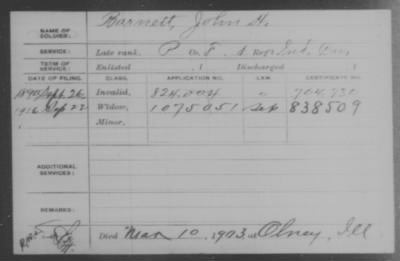 NAME OF SOLDIER: Barnett, John H.
SERVICE: Late rank, P Co. F, Reg't Ind. Cav.
TERM OF SERVICE: Enlisted , 1 Discharged , 1
DATE OF FILING. CLASS. APPLICATION NO. LAW. CERTIFICATE NO.
1890 Sept 26 Invalid, 704,730
1916 Sep 22 Widow, 1075051 838509
Minor,
ADDITIONAL SERVICES:
REMARKS:
Died Mar 10, 1903, at Olney, Ill